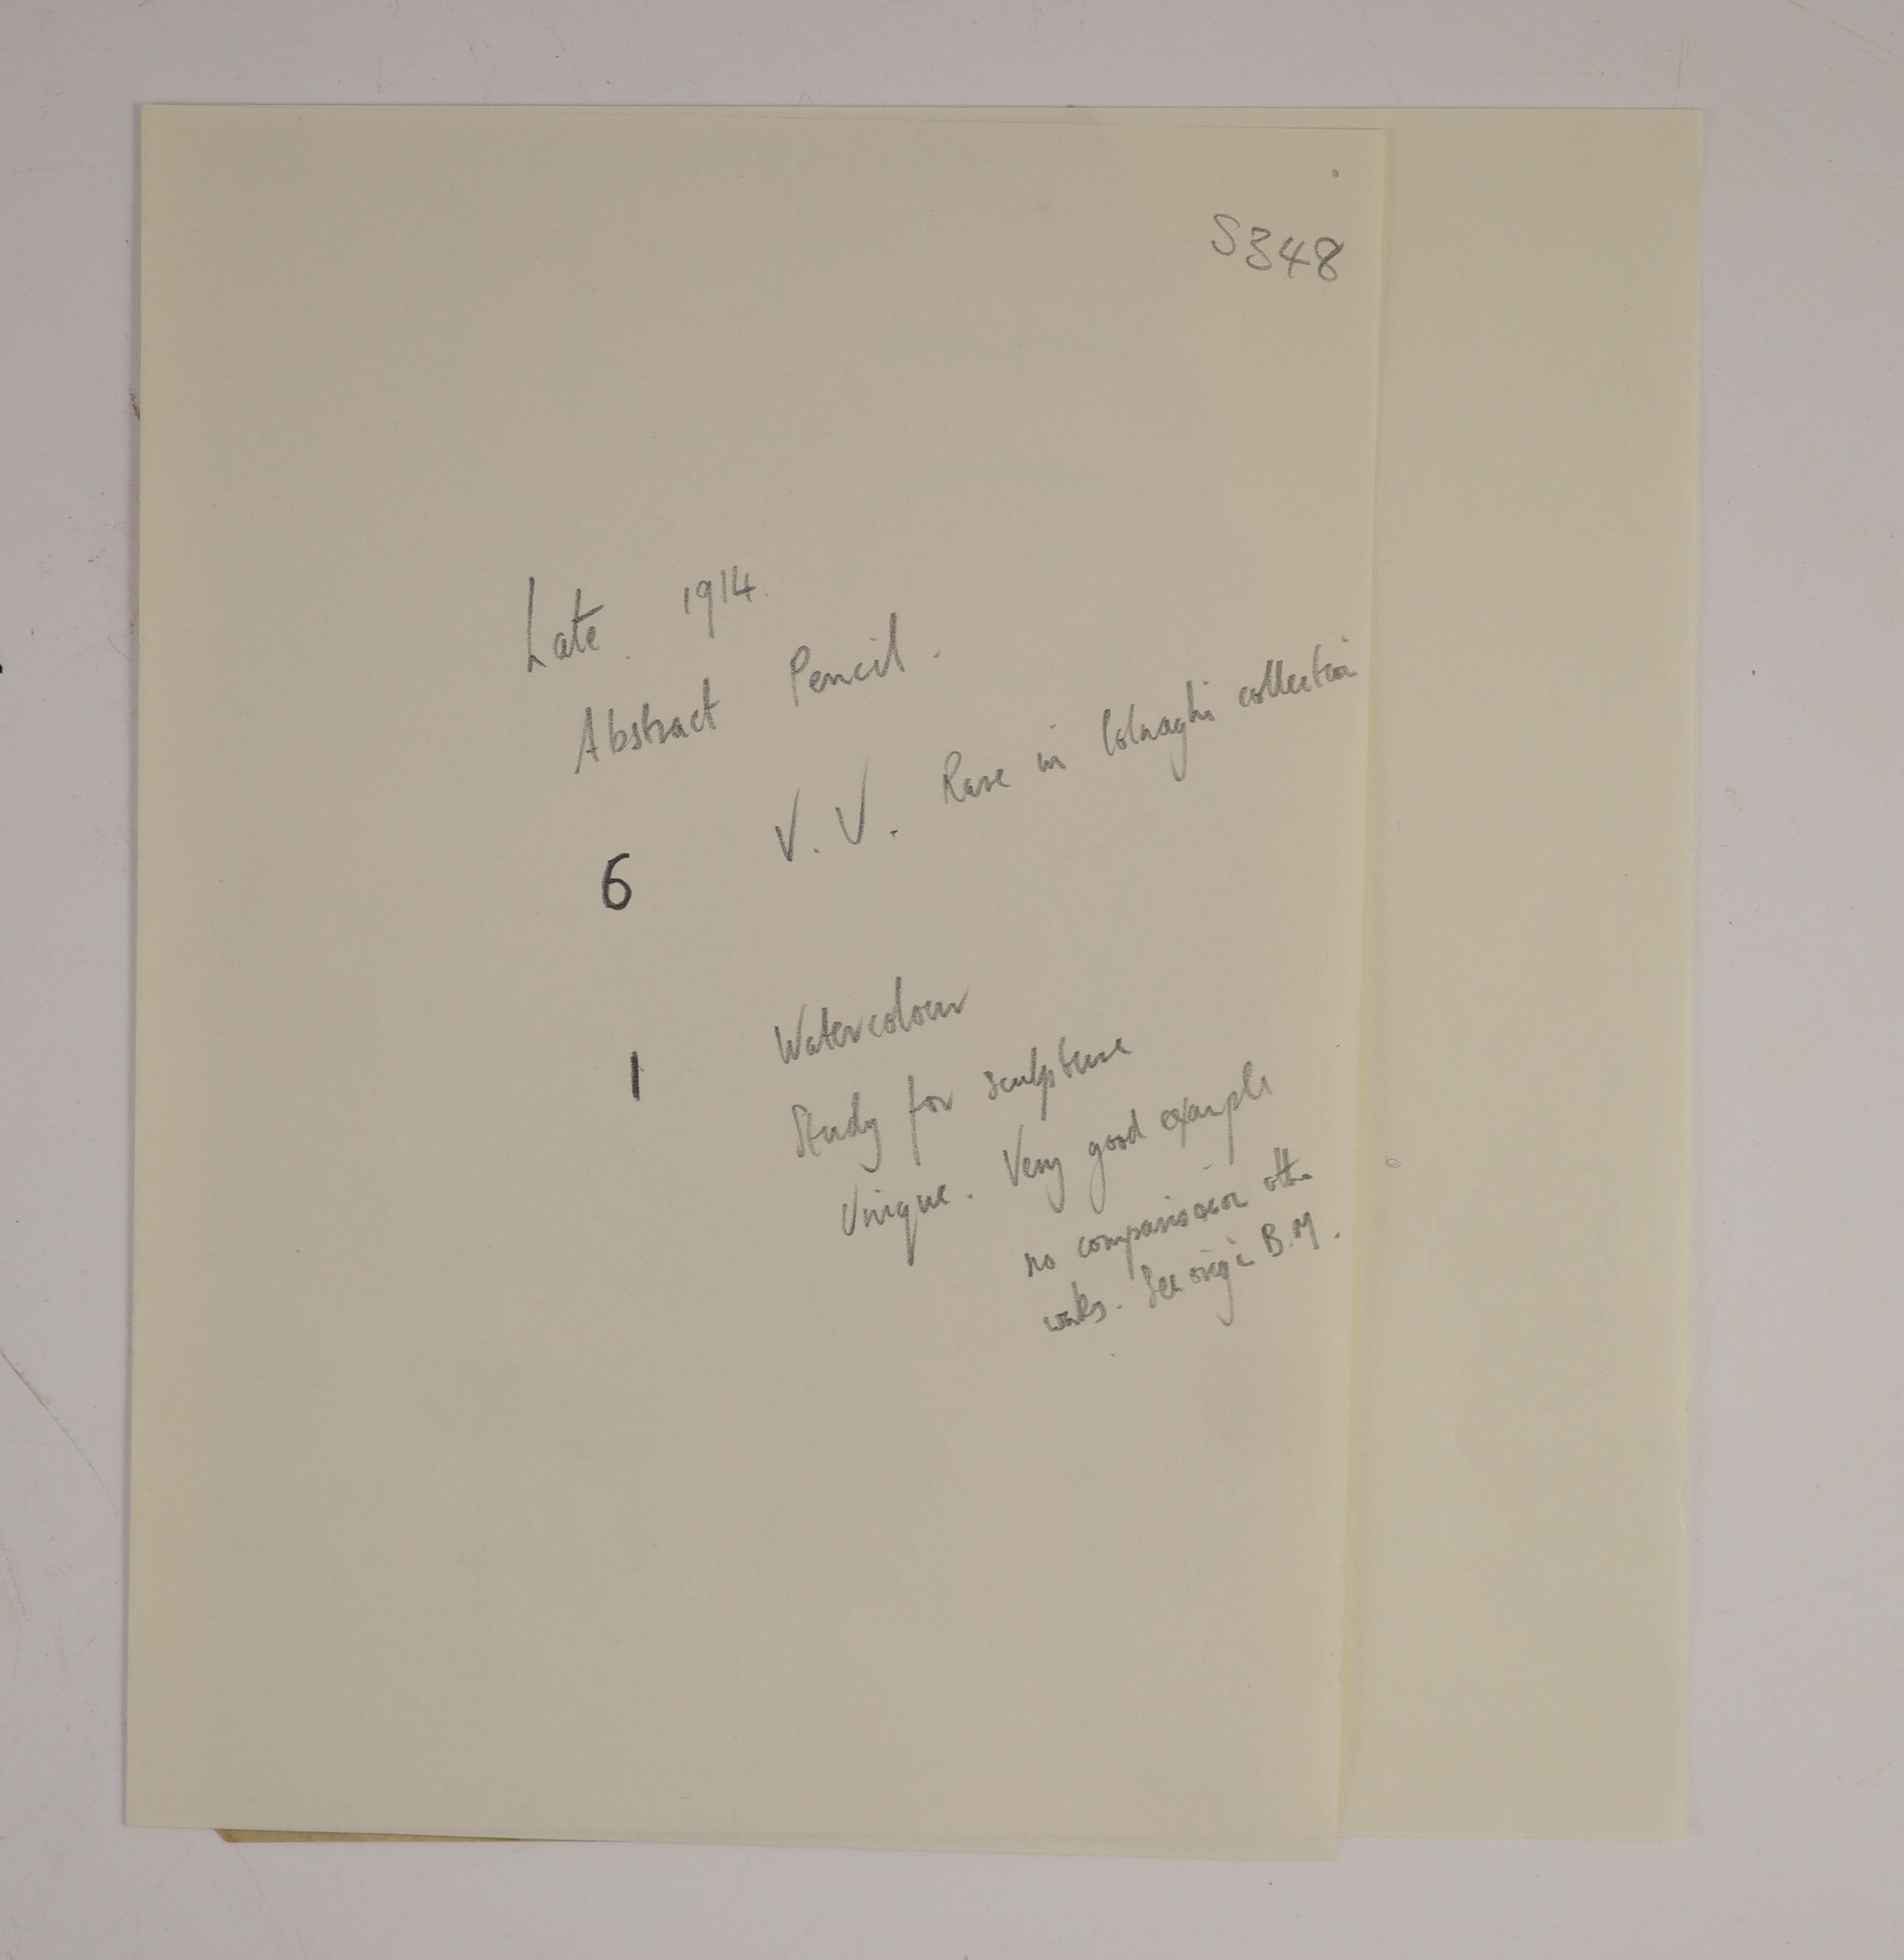 S348
Late. 1914.
Abstract Pencil.
6 V. V. Rare in Colnaghi collection
1 Watercolour
Study for sculpture
Unique. Very good example
no comparison other
works. See orig in B.M.